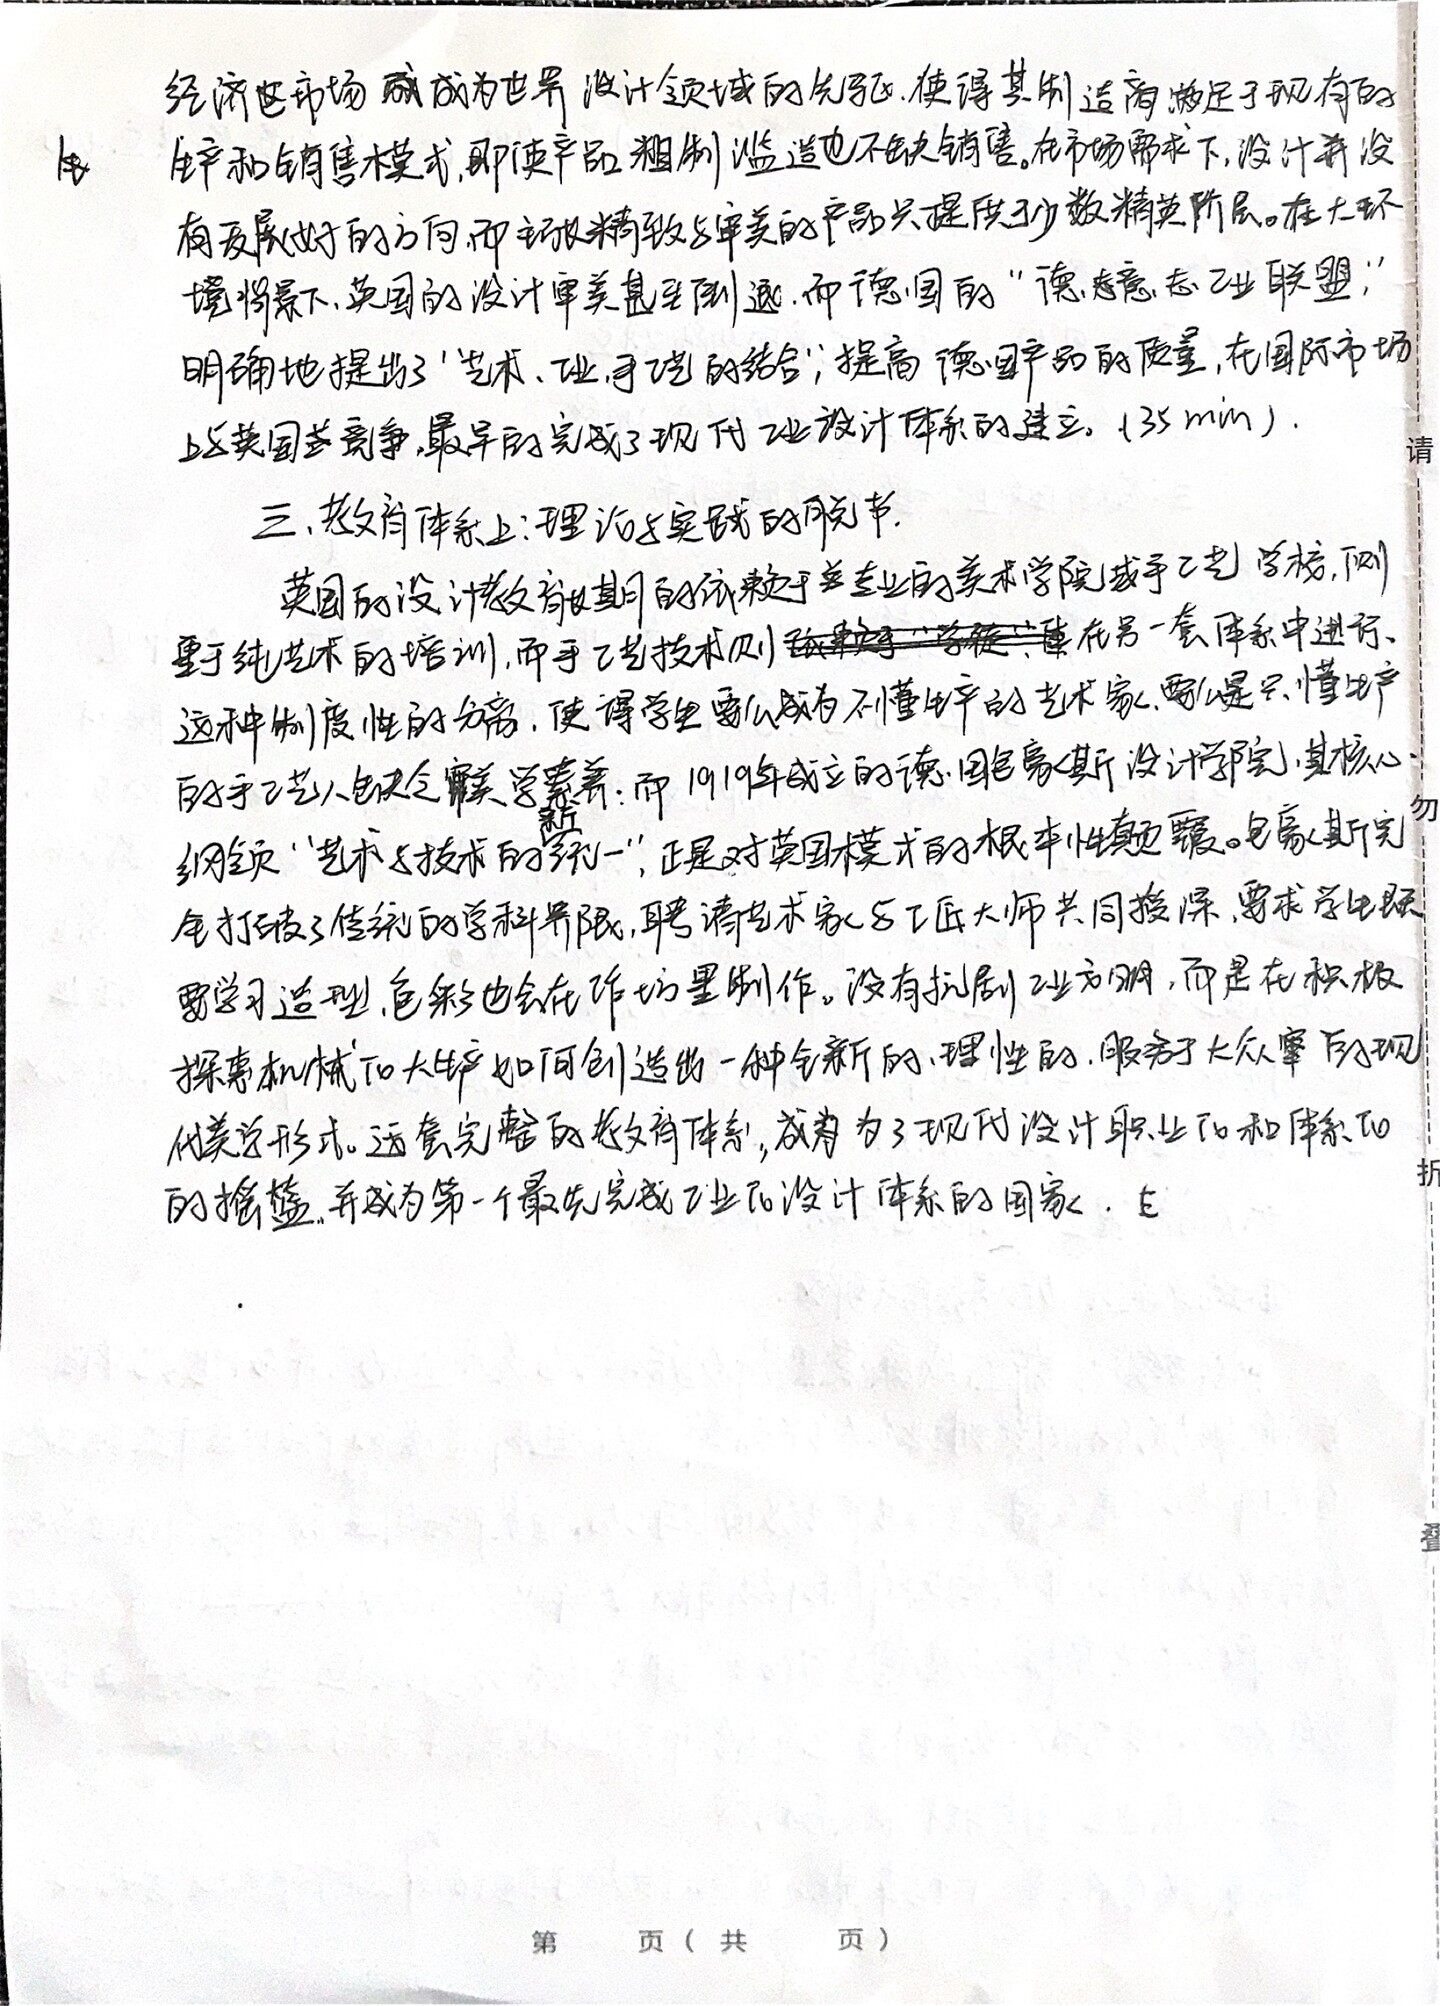 经济也市场成为世界设计领域的先驱.使得其制造商满足于现有的
生产和销售模式,即使产品粗制滥造也不缺销售。在市场需求下,设计并没
有发展好的方向,而主张精致与审美的产品只提供于少数精英阶层。在大环
境背景下,英国的设计审美甚至倒退.而德国的“德意志工业联盟”,
明确地提出了“艺术、工业、手工艺的结合”,提高德国产品的质量,在国际市场
上与英国竞争,最早的完成了现代工业设计体系的建立。(35min).
三、教育体系上:理论与实践的脱节.
英国的设计教育长期的依赖于专业的美术学院或手工艺学校,侧
重于纯艺术的培训,而手工艺技术则在另一套体系中进行、
这种制度性的分离.使得学生要么成为不懂生产的艺术家、要么是只懂生产
的手工艺人缺乏审美学素养;而1919年成立的德国包豪斯设计学院,其核心
纲领“艺术与技术的新统一”,正是对英国模式的根本性颠覆。包豪斯完
全打破了传统的学科界限,聘请艺术家与工匠大师共同授课,要求学生既
要学习造型、色彩也会在作坊里制作。没有抗剧工业文明,而是在积极
探索机械化大生产如何创造出一种全新的、理性的、服务于大众的现
代美学形式。这套完整的教育体系,成为了现代设计职业化和体系化
的摇篮.并成为第一个最先完成工业化设计体系的国家.
请
勿
折
叠
第 页(共 页)